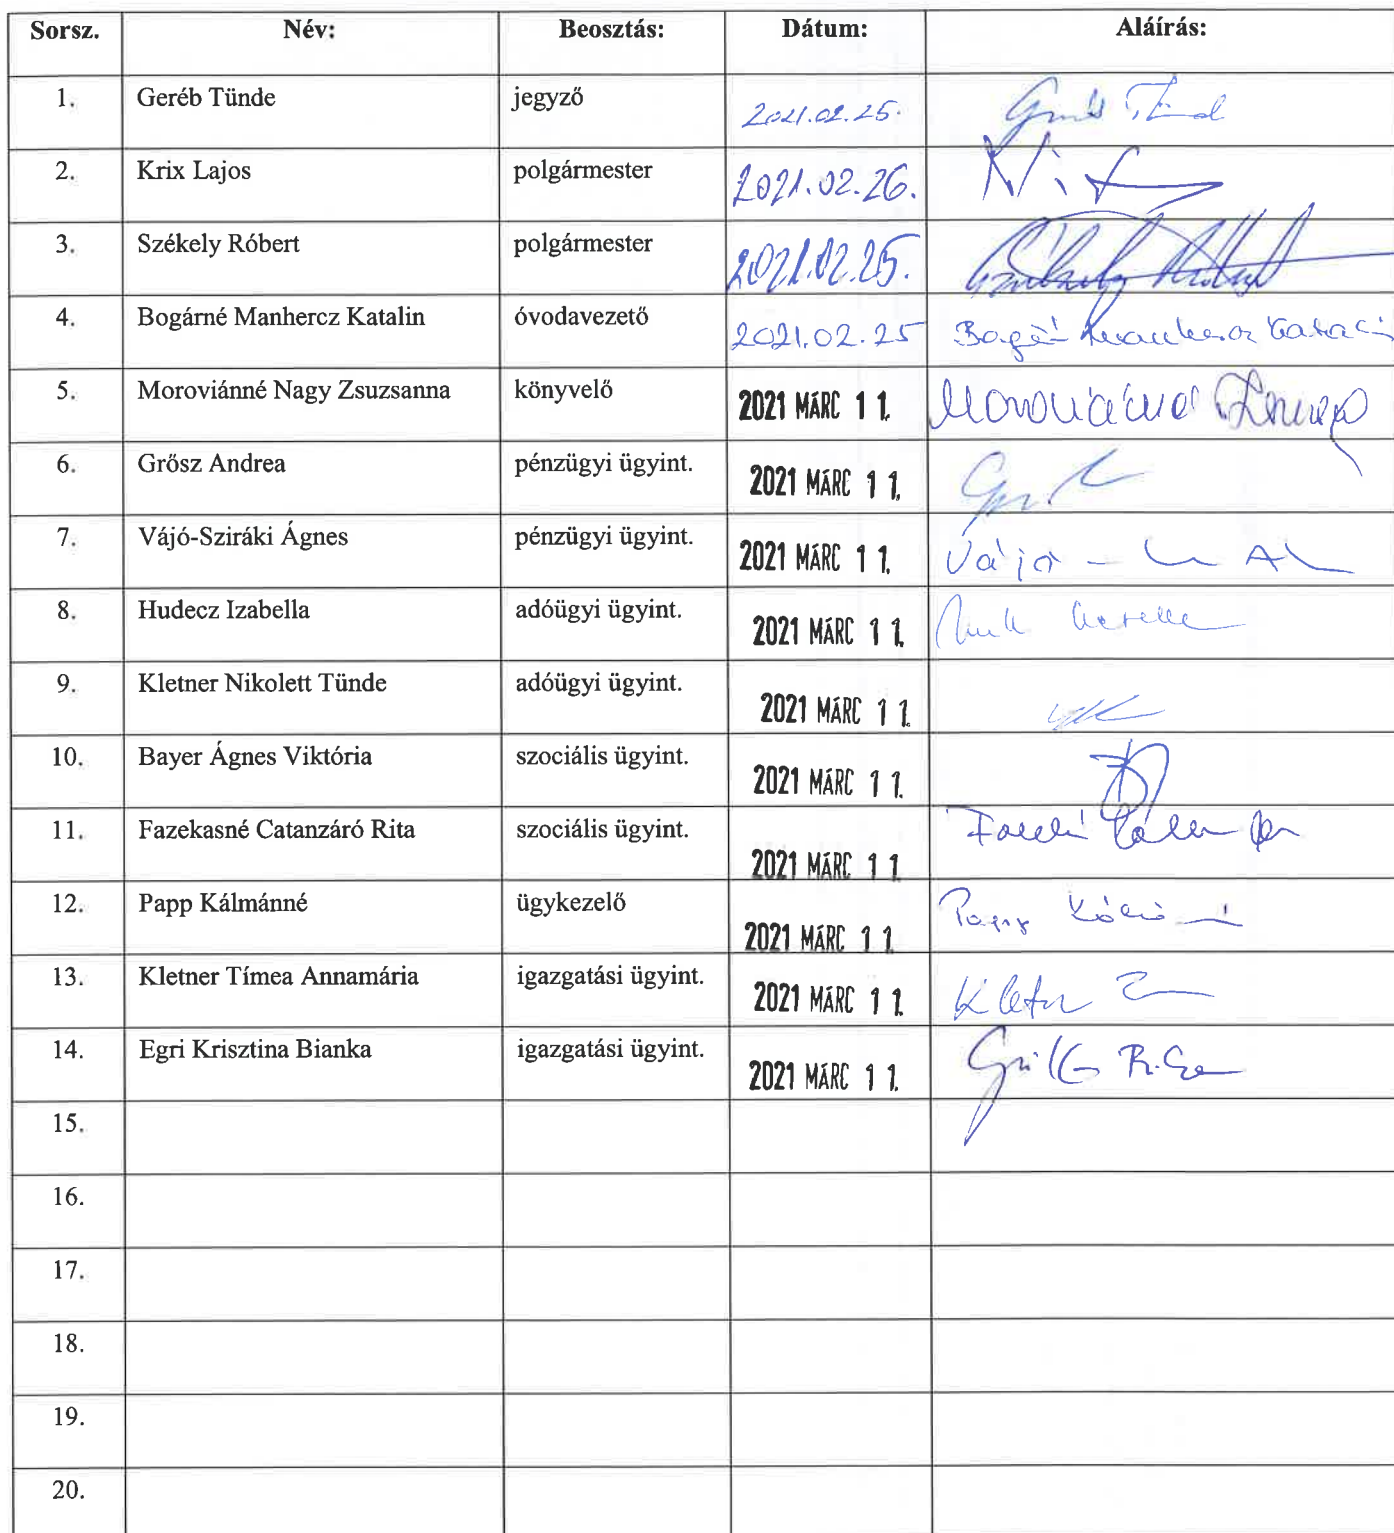 Sorsz. Név: Beosztás: Dátum: Aláírás:
1. Geréb Tünde jegyző 2021.02.25.
2. Krix Lajos polgármester 2021.02.26.
3. Székely Róbert polgármester 2021.02.25.
4. Bogárné Manhercz Katalin óvodavezető 2021.02.25
5. Moroviánné Nagy Zsuzsanna könyvelő 2021 MÁRC 11.
6. Grősz Andrea pénzügyi ügyint. 2021 MÁRC 11.
7. Vájó-Sziráki Ágnes pénzügyi ügyint. 2021 MÁRC 11. Vájó -
8. Hudecz Izabella adóügyi ügyint. 2021 MÁRC 11.
9. Kletner Nikolett Tünde adóügyi ügyint. 2021 MÁRC 11.
10. Bayer Ágnes Viktória szociális ügyint. 2021 MÁRC 11.
11. Fazekasné Catanzáró Rita szociális ügyint. 2021 MÁRC 11.
12. Papp Kálmánné ügykezelő 2021 MÁRC 11.
13. Kletner Tímea Annamária igazgatási ügyint. 2021 MÁRC 11.
14. Egri Krisztina Bianka igazgatási ügyint. 2021 MÁRC 11.
15.
16.
17.
18.
19.
20.